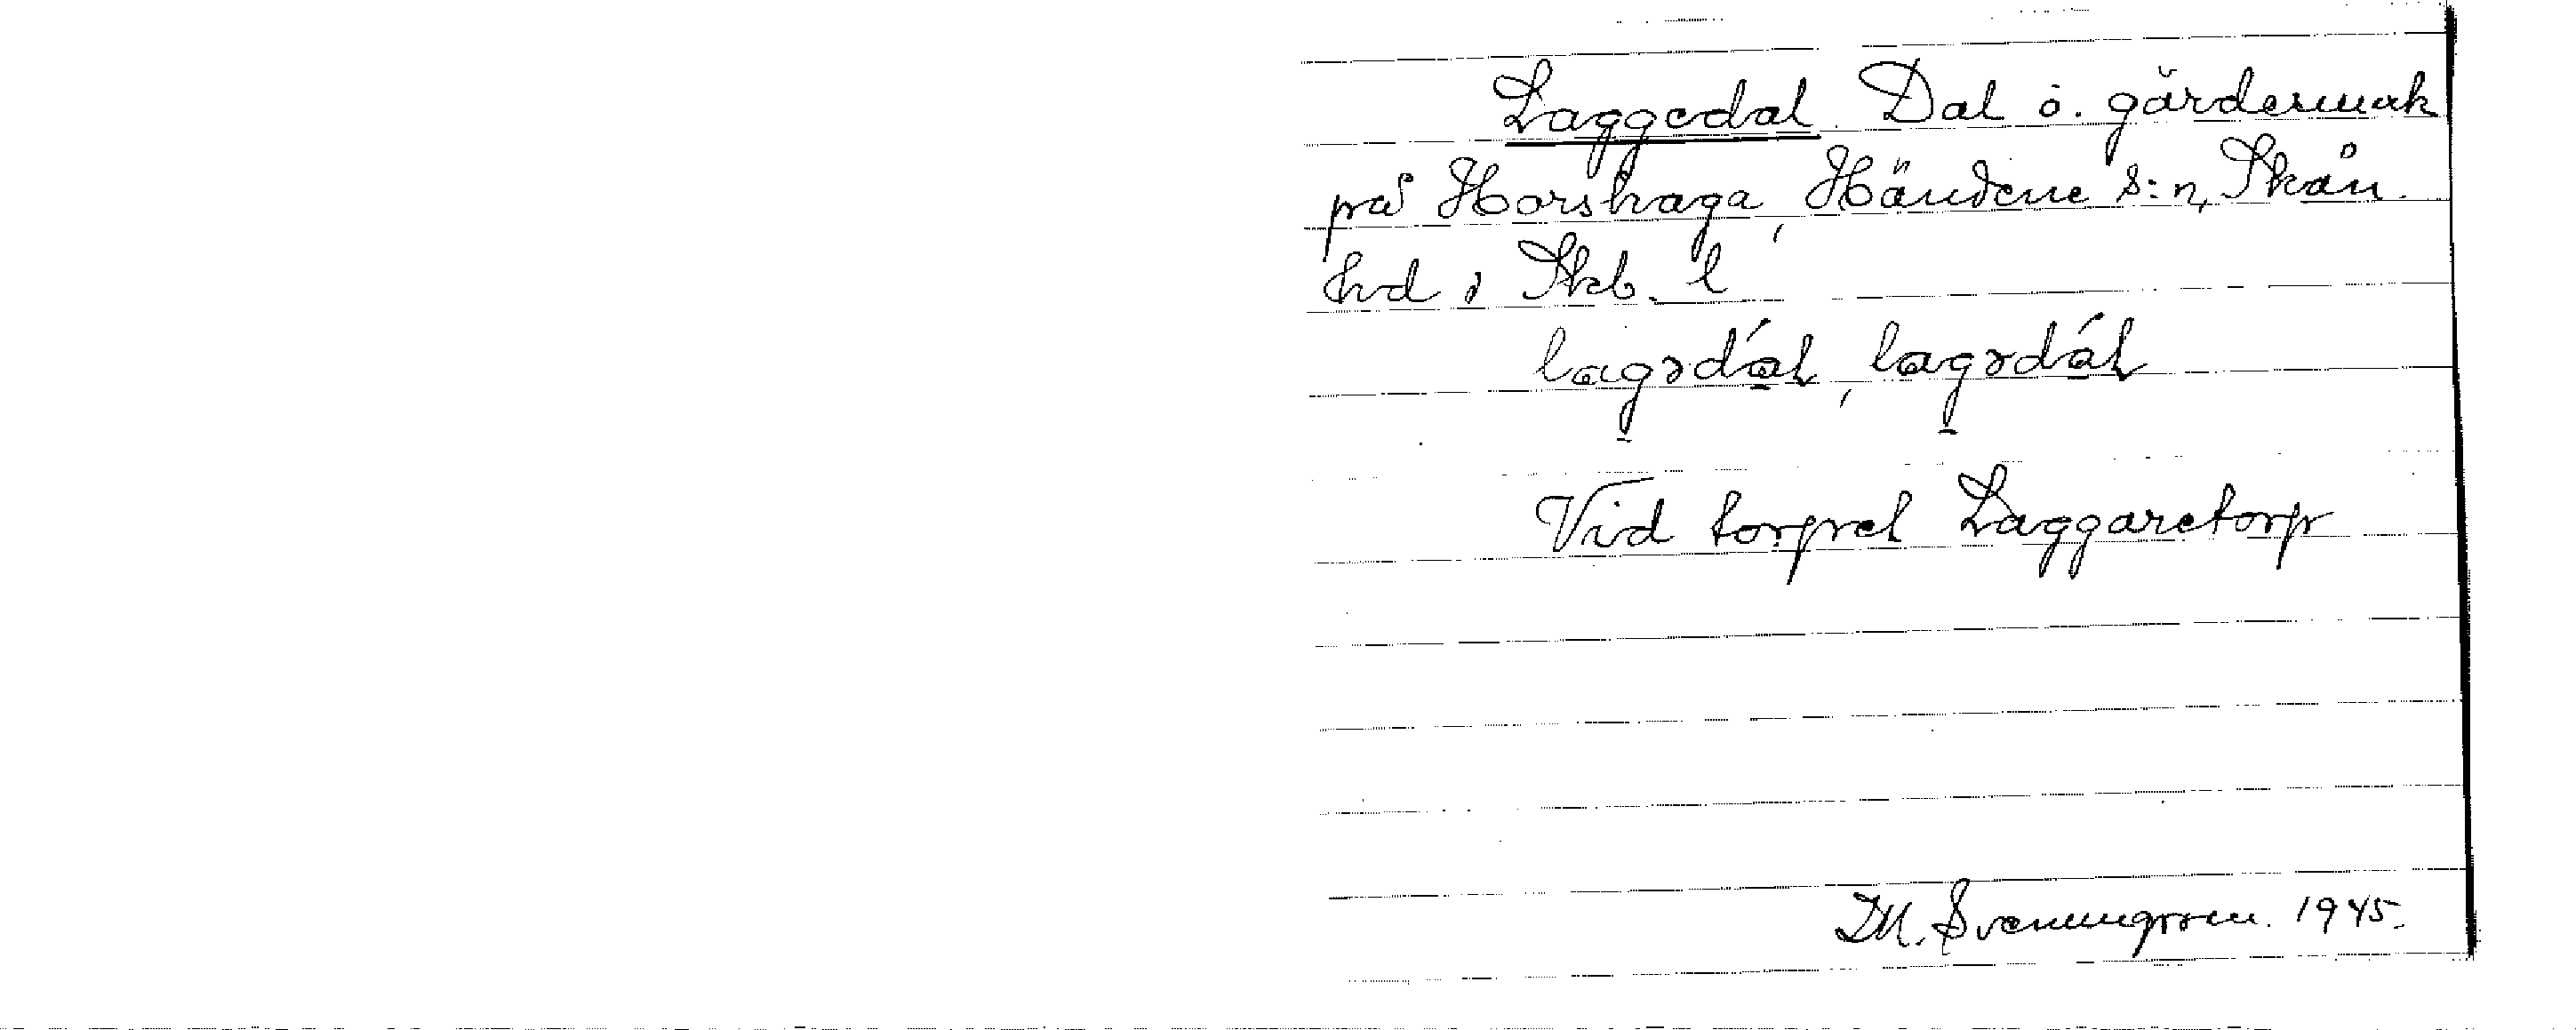 Laggedal. Dal o. gärdesmark
på Horshaga, Händene s:n, Skån.
hd i Skb. l
lagədál, lagədál
Vid torpet Laggaretorp
M. Svenungsson. 1945.